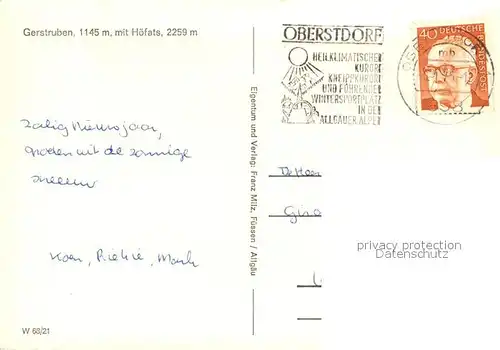 Gerstruben, 1145 m, mit Höfats, 2259 m
OBERSTDORF
HEILKLIMATISCHER
KURORT
KNEIPPKURORT
UND FÜHRENDER
WINTERSPORTPLATZ
IN DER
ALLGÄUER ALPEN
40 DEUTSCHE
BUNDESPOST
Zalig Nieuwjaar,
groeten uit de zonnige
sneeuw
Koen, Riekie, Mark
Eigentum und Verlag: Franz Milz, Füssen / Allgäu
De Heer
privacy protection
AnsichtskartenLexikon
W 63/21